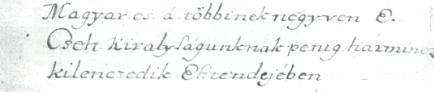 Magyar és a többinek negyven E.
Cseh Királyságunknak penig harmincz
kilenczedik Eszrendejében